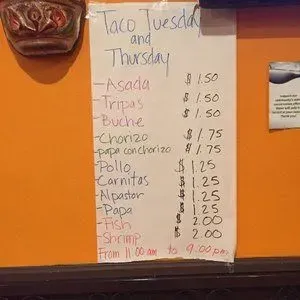 Taco Tuesday
and
Thursday
-Asada $1.50
-Tripas $1.50
-Buche $1.50
-Chorizo $1.75
-papa con chorizo $1.75
-Pollo $1.25
-Carnitas $1.25
-Alpastor $1.25
-Papa $1.25
-Fish $2.00
-Shrimp $2.00
From 11:00 am to 9:00 pm